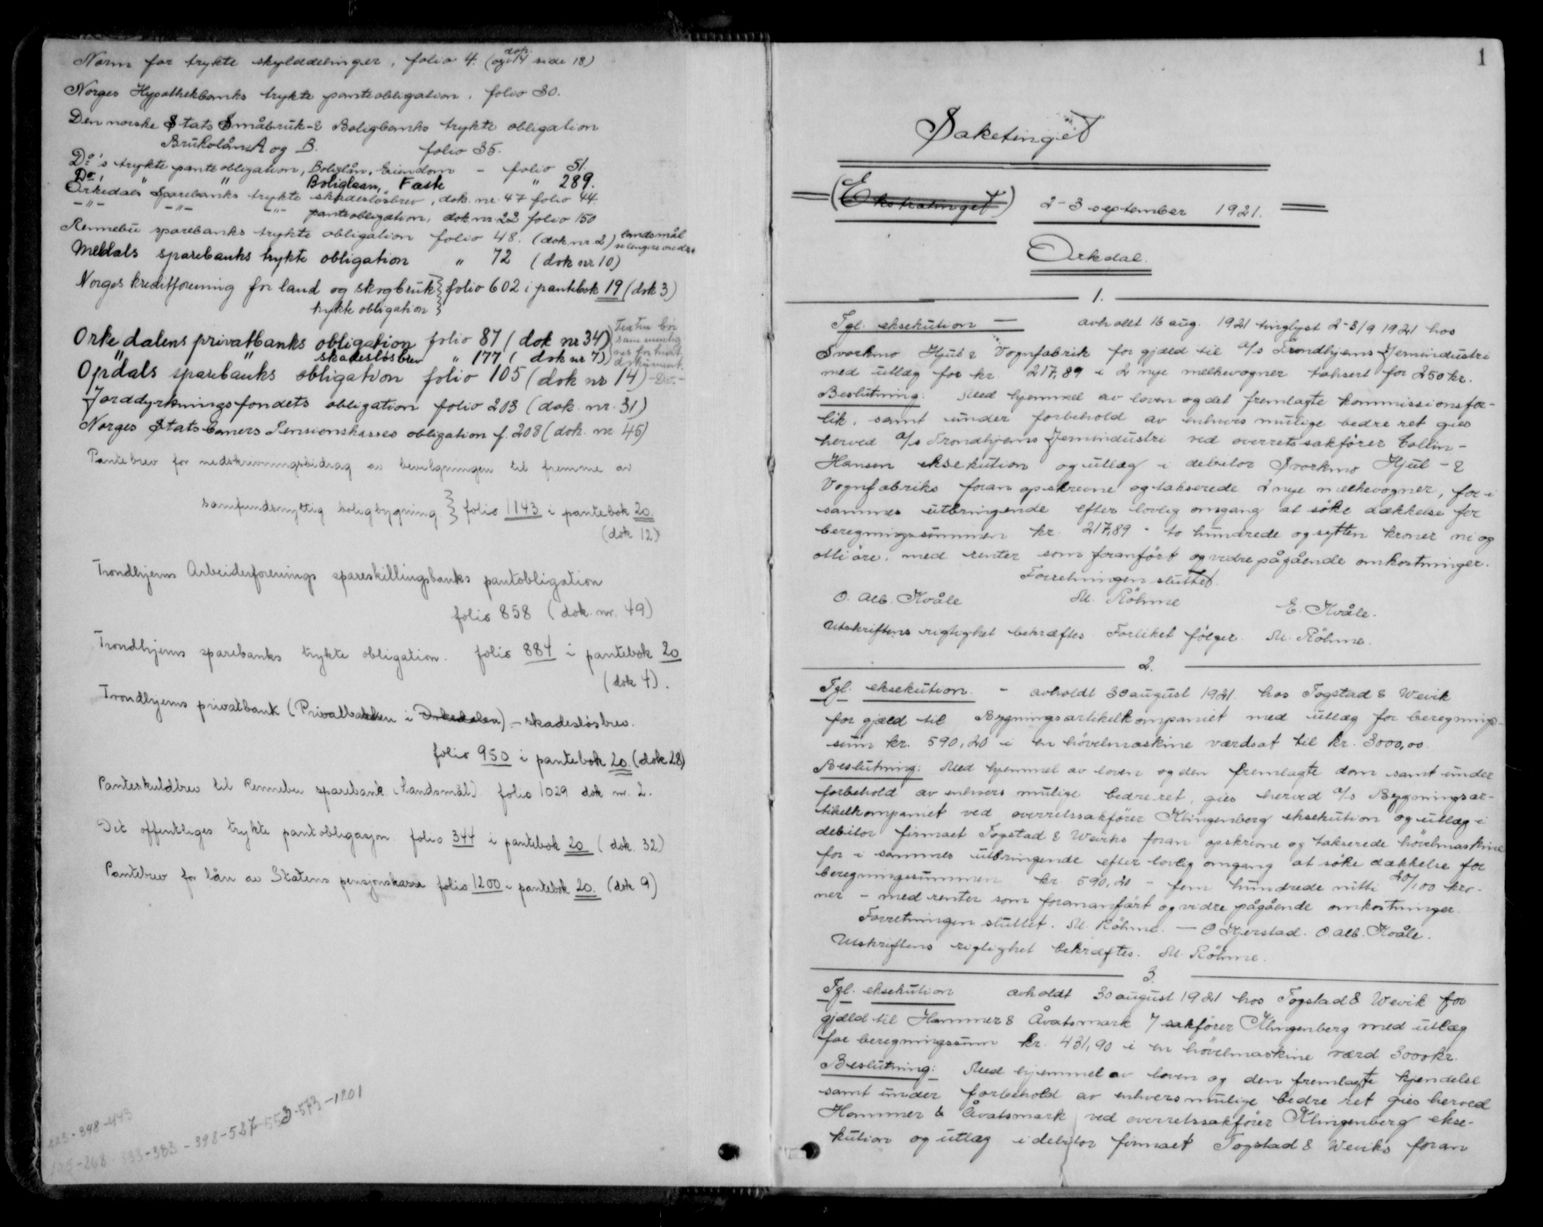 Norm for trykte skylddelinger, folio 4. (og dok. 14 side 18)
Norges Hypothekbanks trykte panteobligation, folio 30.
Den norske Stats Småbruk- & Boligbanks trykte obligation
Brukslån A og B. folio 35.
Do's trykte panteobligation, Boliglån, Eiendom - folio 51
Do. " " Boliglaan, Fæste " 289.
Orkedals Sparebanks trykte skadesløsbrev, dok. nr. 47 folio 44
-"- -"- -"- panteobligation, dok nr 22 folio 150
Rennebu sparebanks trykte obligation folio 48. (dok nr 2) landsmål
Meldals sparebanks trykte obligation " 72 (dok nr 10)
Norges kreditforening for land og skogbruk } folio 602 i pantebok 19 (dok 3)
trykte obligation }
Orkedalens privatbanks obligation folio 87 (dok nr 34)
" " skadesløsbrev " 177 (dok nr 7)
Opdals sparebanks obligation folio 105 (dok nr 14)
Jorddyrkningsfondets obligation folio 203 (dok. nr. 31)
Norges Statsbaners Pensionskasses obligation f. 208 (dok. nr 45)
Pantebrev for nedskrivningsbidrag av bevilgningen til fremme av
samfundsnyttig boligbygning } folio 1143 i pantebok 20
(dok 12)
Trondhjems Arbeiderforenings spareskillingsbanks pantobligation
folio 858 (dok. nr. 49)
Trondhjems sparebanks trykte obligation. folio 884 i pantebok 20
(dok 4).
Trondhjems privatbank (Privatbanken i Orkedalen) - skadesløsbrev.
folio 950 i pantebok 20 (dok 28)
Panteskuldbrev til Rennebu sparebank (Landsmål) folio 1029 dok nr. 2.
Det offentliges trykte pantobligasjon folio 344 i pantebok 20 (dok. 32)
Pantebrev for lån av Statens pensjonskasse folio 1200 i pantebok 20. (dok 9)
1
Saketinget
(Ekstratinget) 2-3 september 1921.
Orkdal.
1.
Tgl. eksekution - avholdt 16 aug. 1921 tinglyst 2-3/9 1921 hos
Svorkmo Hjul & Vognfabrik for gjæld til A/S Trondhjems Jernindustri
med utlæg for kr. 217,89 i 2 nye melkevogner taksert for 250 kr.
Beslutning: Med hjemmel av loven og det fremlagte kommissionsfor-
lik, samt under forbehold av enhvers mulige bedre ret gies
herved A/S Trondhjems Jernindustri ved overretssakfører Collin-
Hansen eksekution og utlæg i debitor Svorkmo Hjul- &
Vognfabriks foran opskrevne og takserede 2 nye melkevogner, for i
sammes utbringende efter lovlig omgang at søke dækkelse for
beregningssummen kr. 217,89 - to hundrede og sytten kroner ni og
otti øre, med renter som foranført og vidre pågående omkostninger.
Forretningen sluttet.
O. Alb. Kvåle M. Röhme E. Kvåle.
Utskriftens rigtighet bekræftes. Forliket følger. M. Röhme.
2.
Tgl. eksekution. - avholdt 30 august 1921. hos Togstad & Wevik
for gjæld til Bygningsartikelkompaniet med utlæg for beregnings-
sum kr. 590,20 i en høvelmaskine værdsat til kr. 3000,00.
Beslutning: Med hjemmel av loven og den fremlagte dom samt under
forbehold av enhvers mulige bedre ret, gies herved A/S Bygningsar-
tikelkompaniet ved overretssakfører Klingenberg eksekution og utlæg i
debitor firmaet Togstad & Weviks foran opskrevne og takserede høvelmaskine
for i sammes utbringende efter lovlig omgang at søke dækkelse for
beregningssummen kr. 590,20 - fem hundrede nitti 20/100 kro-
ner - med renter som forananført og vidre pågående omkostninger.
Forretningen sluttet. M. Röhme. - O Kjerstad. O Alb. Kvåle.
Utskriftens rigtighet bekræftes. M. Röhme.
3.
Tgl. eksekution avholdt 30 august 1921 hos Togstad & Wevik for
gjæld til Hammer & Åvatsmark v/ sakfører Klingenberg med utlæg
for beregningssum kr. 431,90 i en høvelmaskine værd 3000 kr.
Beslutning: Med hjemmel av loven og den fremlagte kjendelse
samt under forbehold av enhvers mulige bedre ret gies herved
Hammer & Åvatsmark ved overretssakfører Klingenberg ekse-
kution og utlæg i debitor firmaet Togstad & Weviks foran